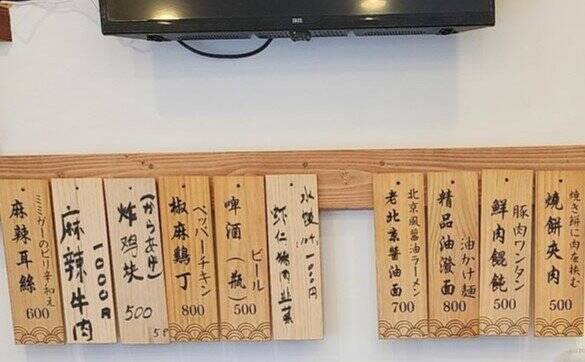 麻辣耳絲
ミミガーのピリ辛和え
600
麻辣牛肉
1000円
炸鸡块
(からあげ)
500
5P
椒麻鷄丁
ペッパーチキン
800
啤酒(瓶)
ビール
500
水餃
10ケ 1000円
虾仁猪肉韭菜
老北京醤油面
北京風醤油ラーメン
700
精品油潑面
油かけ麺
800
鮮肉餛飩
豚肉ワンタン
500
燒餅夾肉
焼き餅に肉を挟む
500